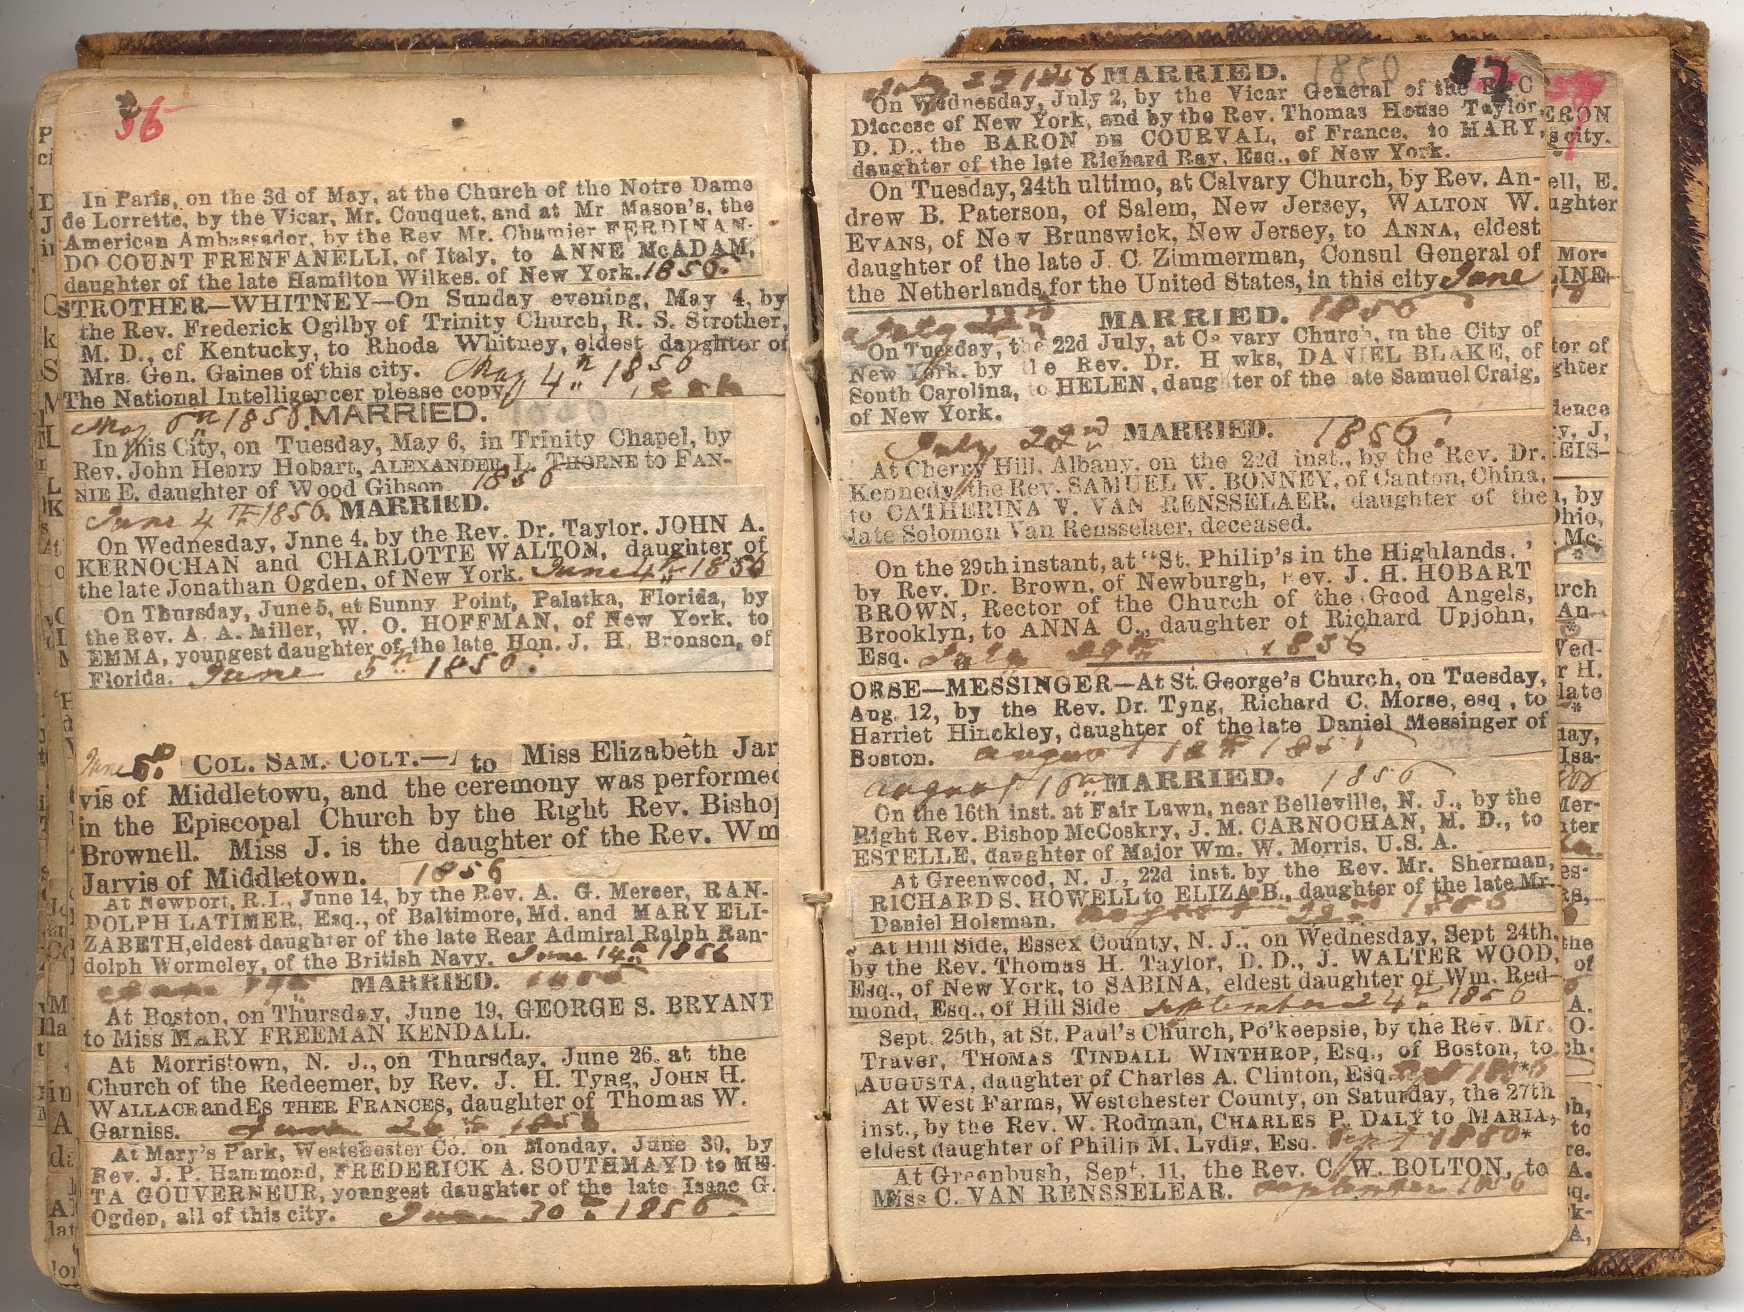 56
In Paris, on the 3d of May, at the Church of the Notre Dame
de Lorrette, by the Vicar, Mr. Couquet, and at Mr Mason's, the
American Ambassador, by the Rev. Mr. Chamier FERDINAN-
DO COUNT FRENFANELLI, of Italy, to ANNE McADAM,
daughter of the late Hamilton Wilkes, of New York. 1856.
STROTHER—WHITNEY—On Sunday evening, May 4, by
the Rev. Frederick Ogilby of Trinity Church, R. S. Strother,
M. D., of Kentucky, to Rhoda Whitney, eldest daughter of
Mrs. Gen. Gaines of this city. May 4th 1856
The National Intelligencer please copy
May 6th 1856. MARRIED.
In this City, on Tuesday, May 6, in Trinity Chapel, by
Rev. John Henry Hobart, ALEXANDER L. THORNE to FAN-
NIE E. daughter of Wood Gibson. 1856
June 4TH 1856. MARRIED.
On Wednesday, Jnne 4, by the Rev. Dr. Taylor. JOHN A.
KERNOCHAN and CHARLOTTE WALTON, daughter of
the late Jonathan Ogden, of New York. June 4th 1856
On Thursday, June 5, at Sunny Point, Palatka, Florida, by
the Rev. A. A. Miller, W. O. HOFFMAN, of New York, to
EMMA, youngest daughter of the late Hon. J. H. Bronson, of
Florida. June 5th 1856.
June 5th. COL. SAM. COLT.— to Miss Elizabeth Jar
vis of Middletown, and the ceremony was performed
in the Episcopal Church by the Right Rev. Bishop
Brownell. Miss J. is the daughter of the Rev. Wm
Jarvis of Middletown. 1856
At Newport, R.I., June 14, by the Rev. A. G. Mercer, RAN-
DOLPH LATIMER, Esq., of Baltimore, Md. and MARY ELI-
ZABETH, eldest daughter of the late Rear Admiral Ralph Ran-
dolph Wormeley, of the British Navy. June 14th 1856
June 19th MARRIED. 1856
At Boston, on Thursday, June 19, GEORGE S. BRYANT
to Miss MARY FREEMAN KENDALL.
At Morristown, N. J., on Thursday, June 26, at the
Church of the Redeemer, by Rev. J. H. Tyng, JOHN H.
WALLACE and ESTHER FRANCES, daughter of Thomas W.
Garniss. June 26th 1856
At Mary's Park, Westchester Co. on Monday, June 30, by
Rev. J. P. Hammond, FREDERICK A. SOUTHMAYD to ME-
TA GOUVERNEUR, youngest daughter of the late Isaac G.
Ogden, all of this city. June 30th 1856
57
July 2d 1856 MARRIED. 1856
On Wednesday, July 2, by the Vicar General of the R. C
Diocese of New York, and by the Rev. Thomas House Taylor,
D. D., the BARON DE COURVAL, of France, to MARY,
daughter of the late Richard Ray, Esq., of New York.
On Tuesday, 24th ultimo, at Calvary Church, by Rev. An-
drew B. Paterson, of Salem, New Jersey, WALTON W.
EVANS, of New Brunswick, New Jersey, to ANNA, eldest
daughter of the late J. C. Zimmerman, Consul General of
the Netherlands for the United States, in this city June
July 22nd MARRIED. 1856
On Tuesday, the 22d July, at Calvary Church, in the City of
New York, by the Rev. Dr. Hawks, DANIEL BLAKE, of
South Carolina, to HELEN, daughter of the late Samuel Craig,
of New York.
July 22nd MARRIED. 1856.
At Cherry Hill, Albany, on the 22d inst., by the Rev. Dr.
Kennedy, the Rev. SAMUEL W. BONNEY, of Canton, China,
to CATHERINA V. VAN RENSSELAER, daughter of the
late Solomon Van Rensselaer, deceased.
On the 29th instant, at "St. Philip's in the Highlands,'
by Rev. Dr. Brown, of Newburgh, Rev. J. H. HOBART
BROWN, Rector of the Church of the Good Angels,
Brooklyn, to ANNA C., daughter of Richard Upjohn,
Esq. July 29th 1856
ORSE—MESSINGER—At St. George's Church, on Tuesday,
Aug. 12, by the Rev. Dr. Tyng, Richard C. Morse, esq, to
Harriet Hinckley, daughter of the late Daniel Messinger of
Boston. August 12th 1856
August 16th MARRIED. 1856
On the 16th inst. at Fair Lawn, near Belleville, N. J., by the
Right Rev. Bishop McCoskry, J. M. CARNOCHAN, M. D., to
ESTELLE, daughter of Major Wm. W. Morris, U.S.A.
At Greenwood, N. J., 22d inst. by the Rev. Mr. Sherman,
RICHARD S. HOWELL to ELIZA B., daughter of the late Mr.
Daniel Holsman. August 22nd 1856
At Hill Side, Essex County, N. J., on Wednesday, Sept 24th,
by the Rev. Thomas H. Taylor, D. D., J. WALTER WOOD,
Esq., of New York, to SABINA, eldest daughter of Wm. Red-
mond, Esq., of Hill Side September 24th 1856
Sept. 25th, at St. Paul's Church, Po'keepsie, by the Rev. Mr.
Traver, THOMAS TINDALL WINTHROP, Esq., of Boston, to
AUGUSTA, daughter of Charles A. Clinton, Esq. Sept 1856*
At West Farms, Westchester County, on Saturday, the 27th
inst., by the Rev. W. Rodman, CHARLES P. DALY to MARIA,
eldest daughter of Philip M. Lydig, Esq. Sept 1856*
At Greenbush, Sept. 11, the Rev. C. W. BOLTON, to
Miss C. VAN RENSSELEAR. September 1856